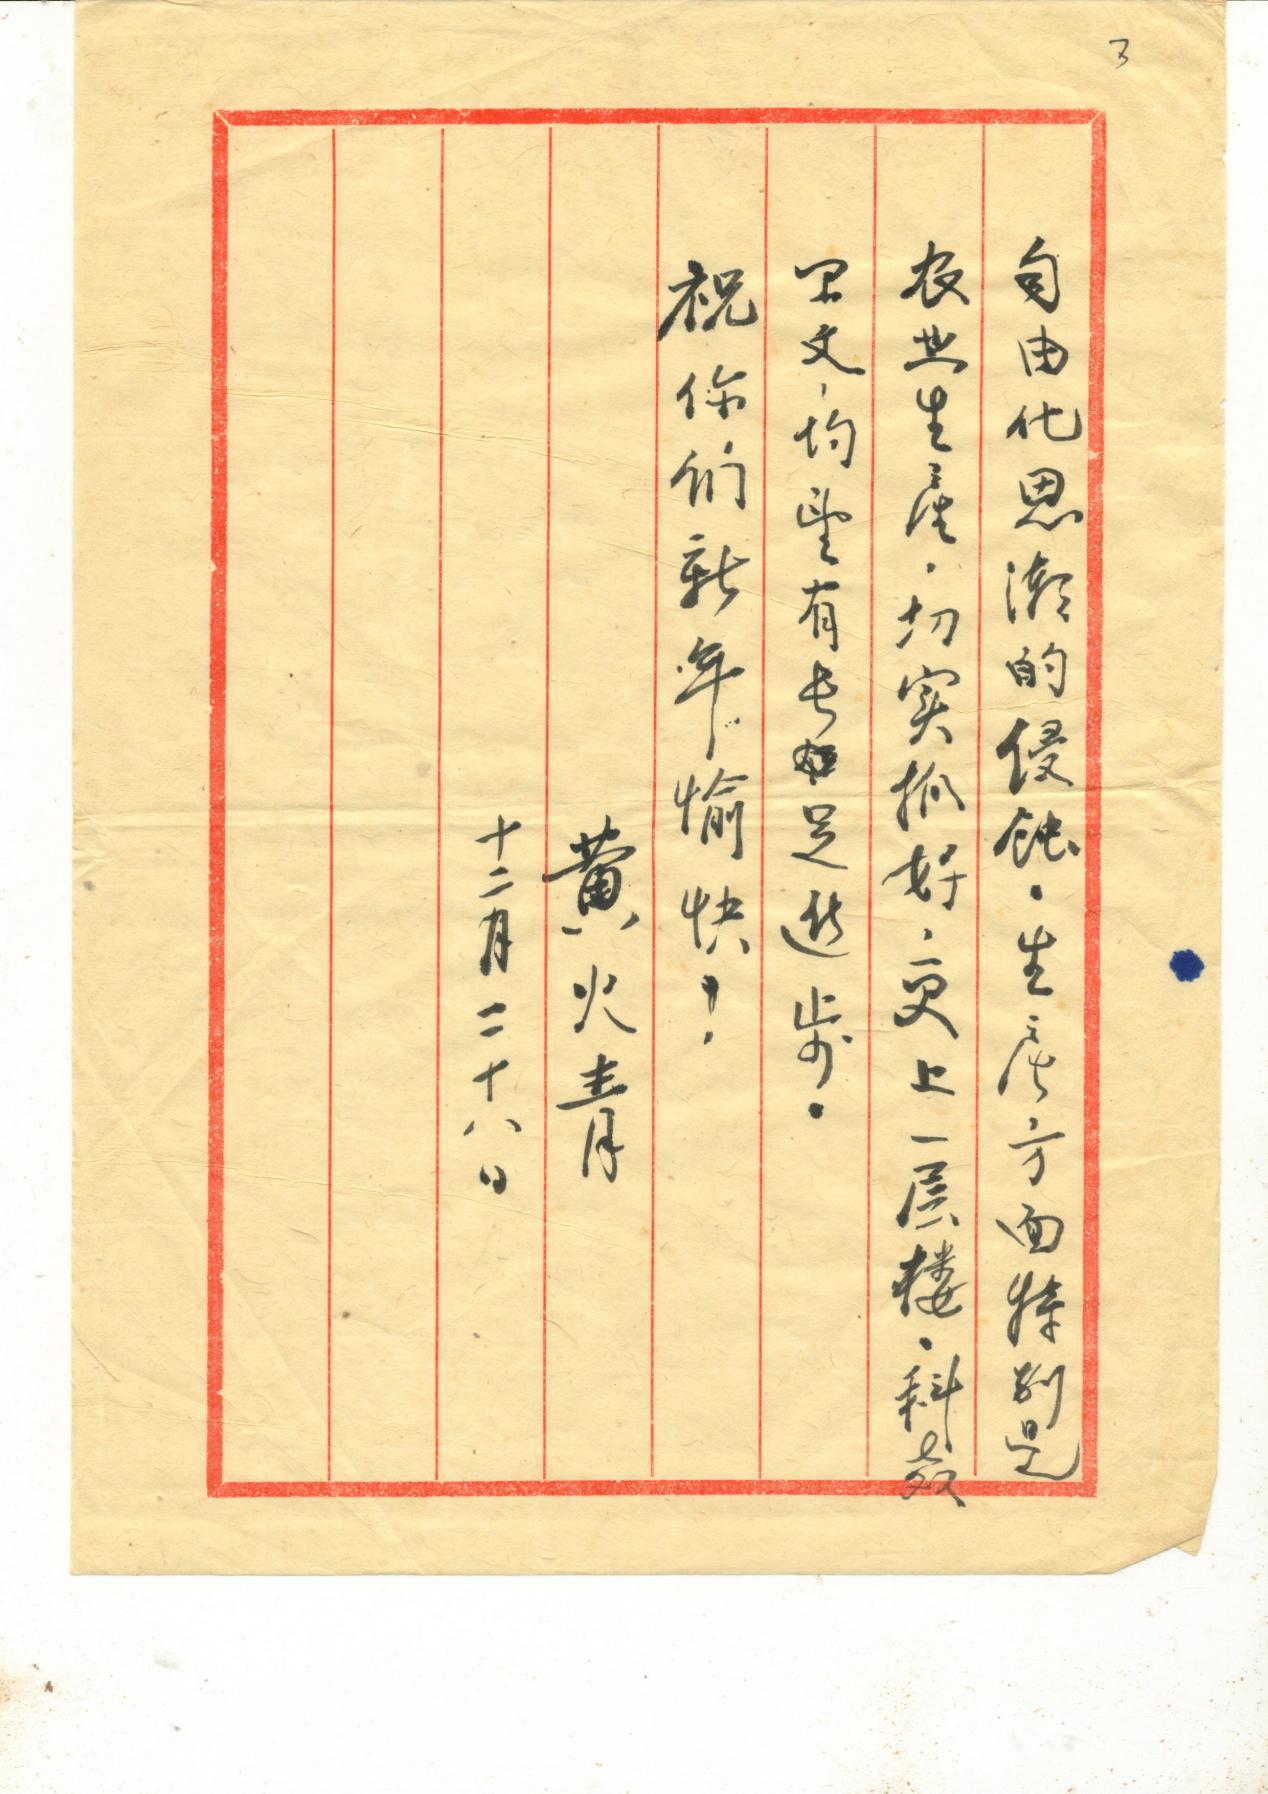 3
自由化思潮的侵蚀。生产方面特别是
农业生产，切实抓好，更上一层楼。科教
文，均望有长足进步。
祝你们新年愉快！
黄火青
十二月二十八日